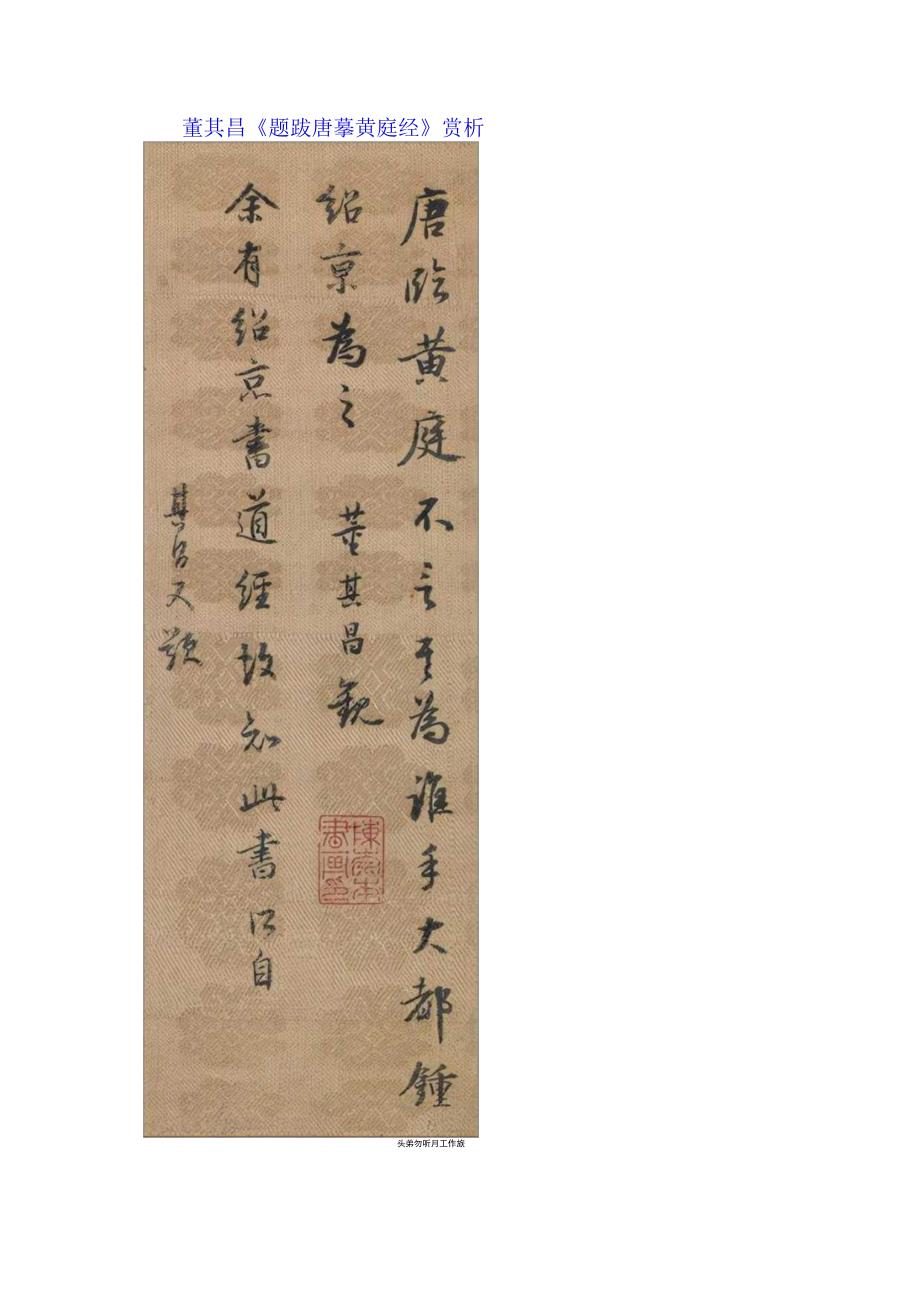 董其昌《题跋唐摹黄庭经》赏析
唐临黄庭不言其為誰手大都鍾
紹京為之 董其昌觀
余有紹京書道經故知此書所自
其昌又題
陳崇本書畫印
头弟勿听月工作旅